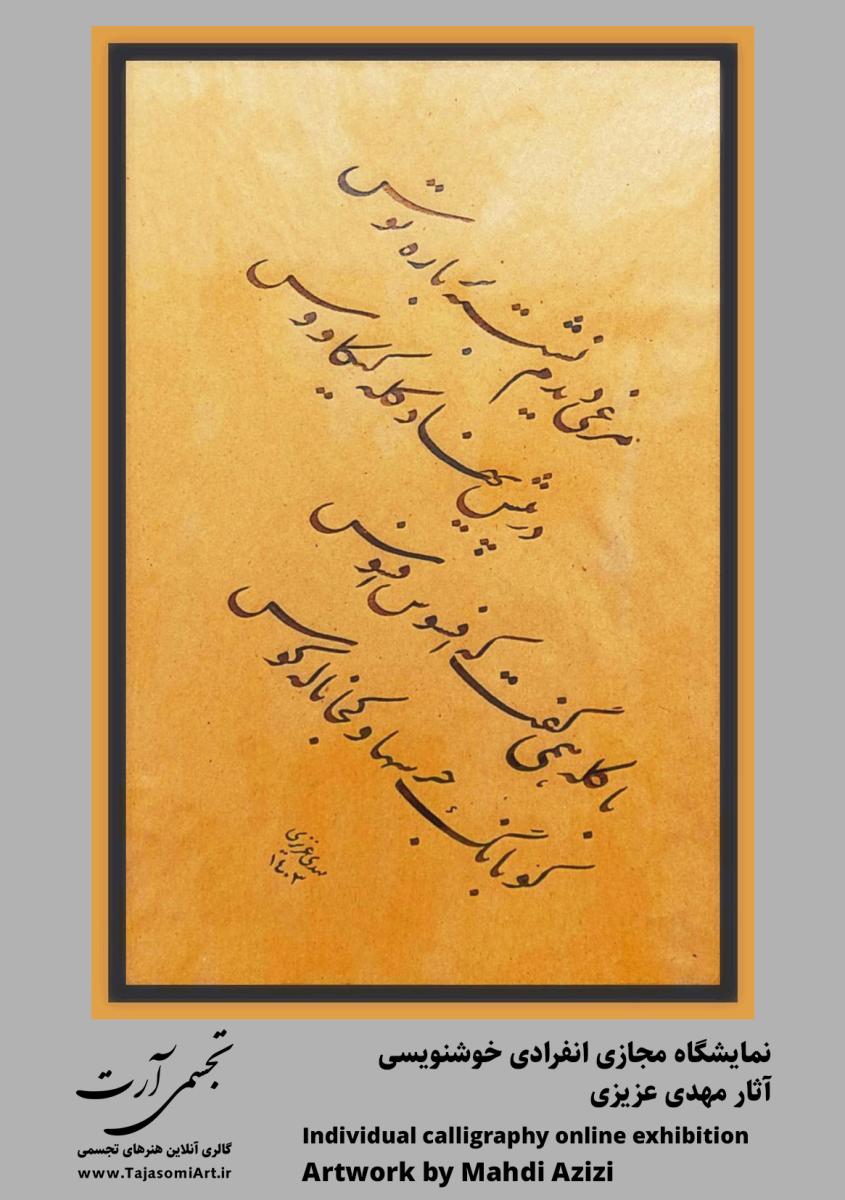 مرغی دیدم نشسته بر باره توس
در پیش نهاده کله کیکاووس
با کله همی گفت که افسوس افسوس
کو بانگ جرسها و کجا ناله کوس
مهدی عزیزی
۱۴۰۳
نمایشگاه مجازی انفرادی خوشنویسی
آثار مهدی عزیزی
Individual calligraphy online exhibition
Artwork by Mahdi Azizi
تجسمی آرت
گالری آنلاین هنرهای تجسمی
www.TajasomiArt.ir